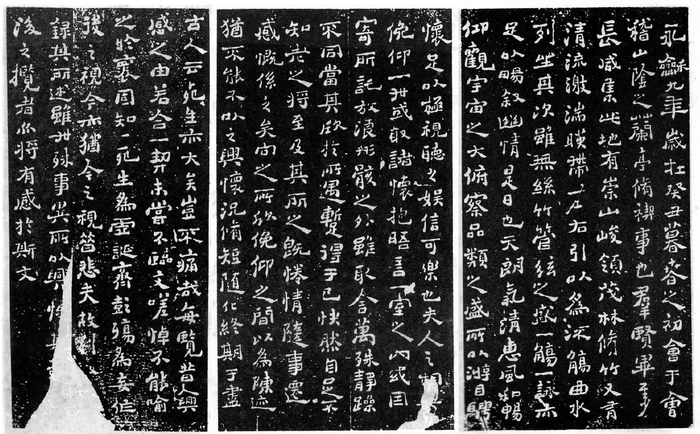 永龢九年歲在癸丑暮春之初會于會
稽山陰之蘭亭脩禊事也羣賢畢至少
長咸集此地有崇山峻領茂林脩竹又有
清流激湍暎帶左右引以為流觴曲水
列坐其次雖無絲竹管弦之盛一觴一詠亦
足以暢敘幽情是日也天朗氣清惠風和暢
仰觀宇宙之大俯察品類之盛所以遊目騁
懷足以極視聽之娛信可樂也夫人之相與
俛仰一世或取諸懷抱晤言一室之內或因
寄所託放浪形骸之外雖取舍萬殊靜躁
不同當其欣於所遇暫得于己快然自足不
知老之將至及其所之既惓情隨事遷
感慨係之矣向之所欣俛仰之間以為陳迹
猶不能不以之興懷況脩短隨化終期于盡
古人云死生亦大矣豈不痛哉每覽昔人興
感之由若合一契未嘗不臨文嗟悼不能喻
之於懷固知一死生為虛誕齊彭殤為妄作
後之視今亦猶今之視昔悲夫故列
錄其所述雖世殊事異所以興懷其
後之攬者亦將有感於斯文